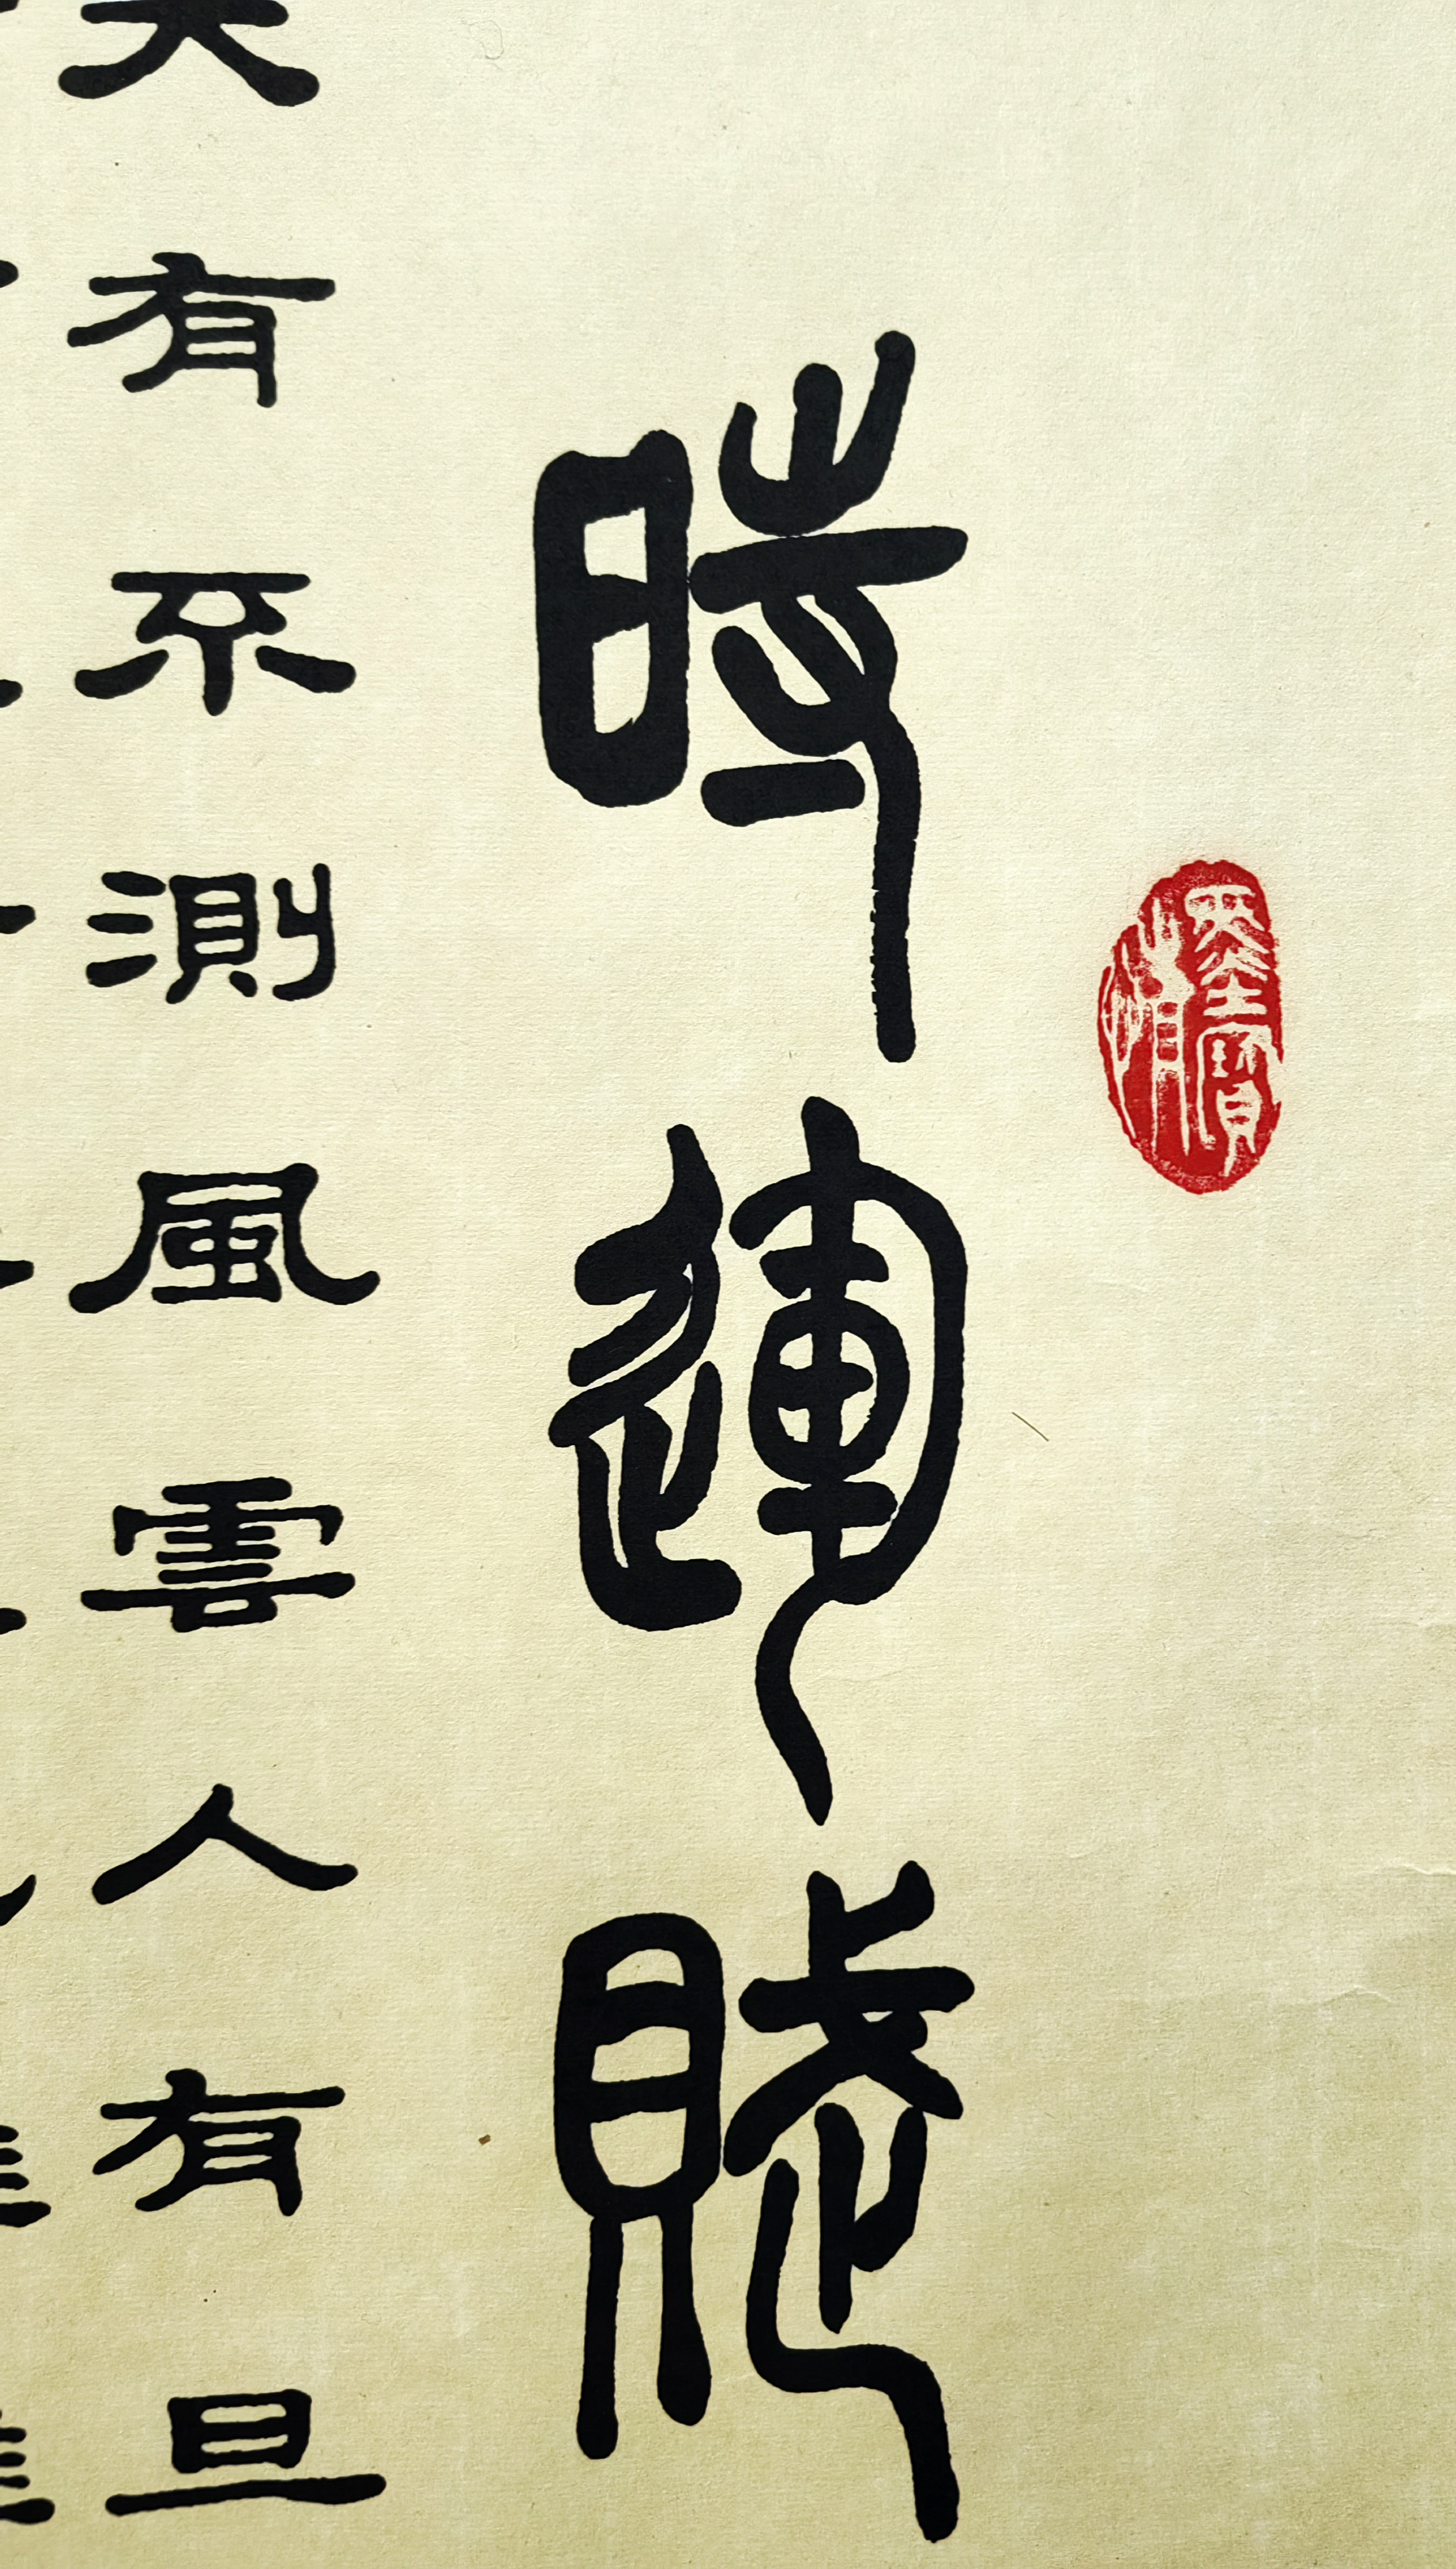 時運賦
天有不測風雲人有旦